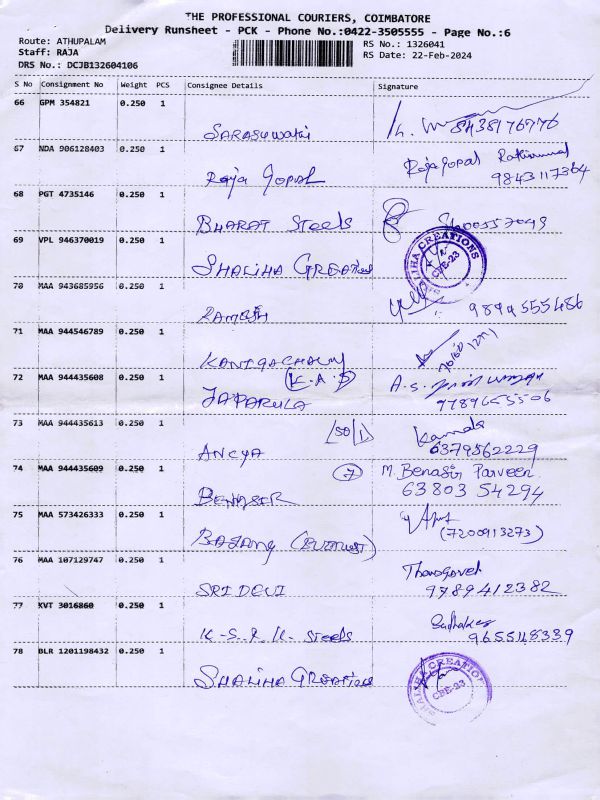 THE PROFESSIONAL COURIERS, COIMBATORE
Delivery Runsheet - PCK - Phone No.:0422-3505555 - Page No.:6
Route: ATHUPALAM
Staff: RAJA
DRS No.: DCJB132604106
RS No.: 1326041
RS Date: 22-Feb-2024
S No Consignment No Weight PCS Consignee Details Signature
66 GPM 354821 0.250 1
Saraswathi 8438176776
67 NDA 906128403 0.250 1
Raja Gopal RajaGopal 9843117364
68 PGT 4735146 0.250 1
BHARAT Steels
69 VPL 946370019 0.250 1
SHALIHA CREATIONS CBE-23
SHALIHA CREATIONS
70 MAA 943685956 0.250 1
RAMESH 9894555486
71 MAA 944546789 0.250 1
72 MAA 944435608 0.250 1
(K.A.S) A.S.
JAPARULA 9789655506
73 MAA 944435613 0.250 1
150/1 Kamala
ANCYA 6379562229
74 MAA 944435609 0.250 1
7 M. Benasir Parveen
BENASIR 63803 54294
75 MAA 573426333 0.250 1
BAJANG (7200913273)
76 MAA 107129747 0.250 1
Thangavel
SRIDEVI 9789412382
77 KVT 3016860 0.250 1
Sudhakar
K.S.R.K. Steels 9655148339
78 BLR 1201198432 0.250 1
SHALIHA CREATIONS CBE-23
SHALIHA CREATIONS